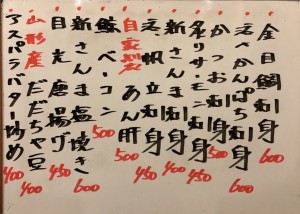 金目鯛刺身 600
かんぱち刺身 600
かつお刺身 500
炙りサーモン刺身 500
新さんま刺身 400
帆立刺身 450
自家製 あん肝 500
鯨ベーコン 500
新さんま塩焼き 600
目光唐揚げ 450
山形産だだちゃ豆 400
アスパラバター炒め 400